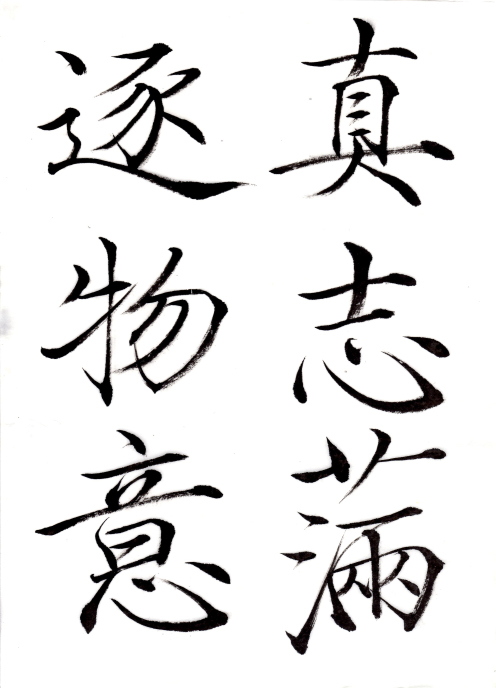 真志滿
逐物意